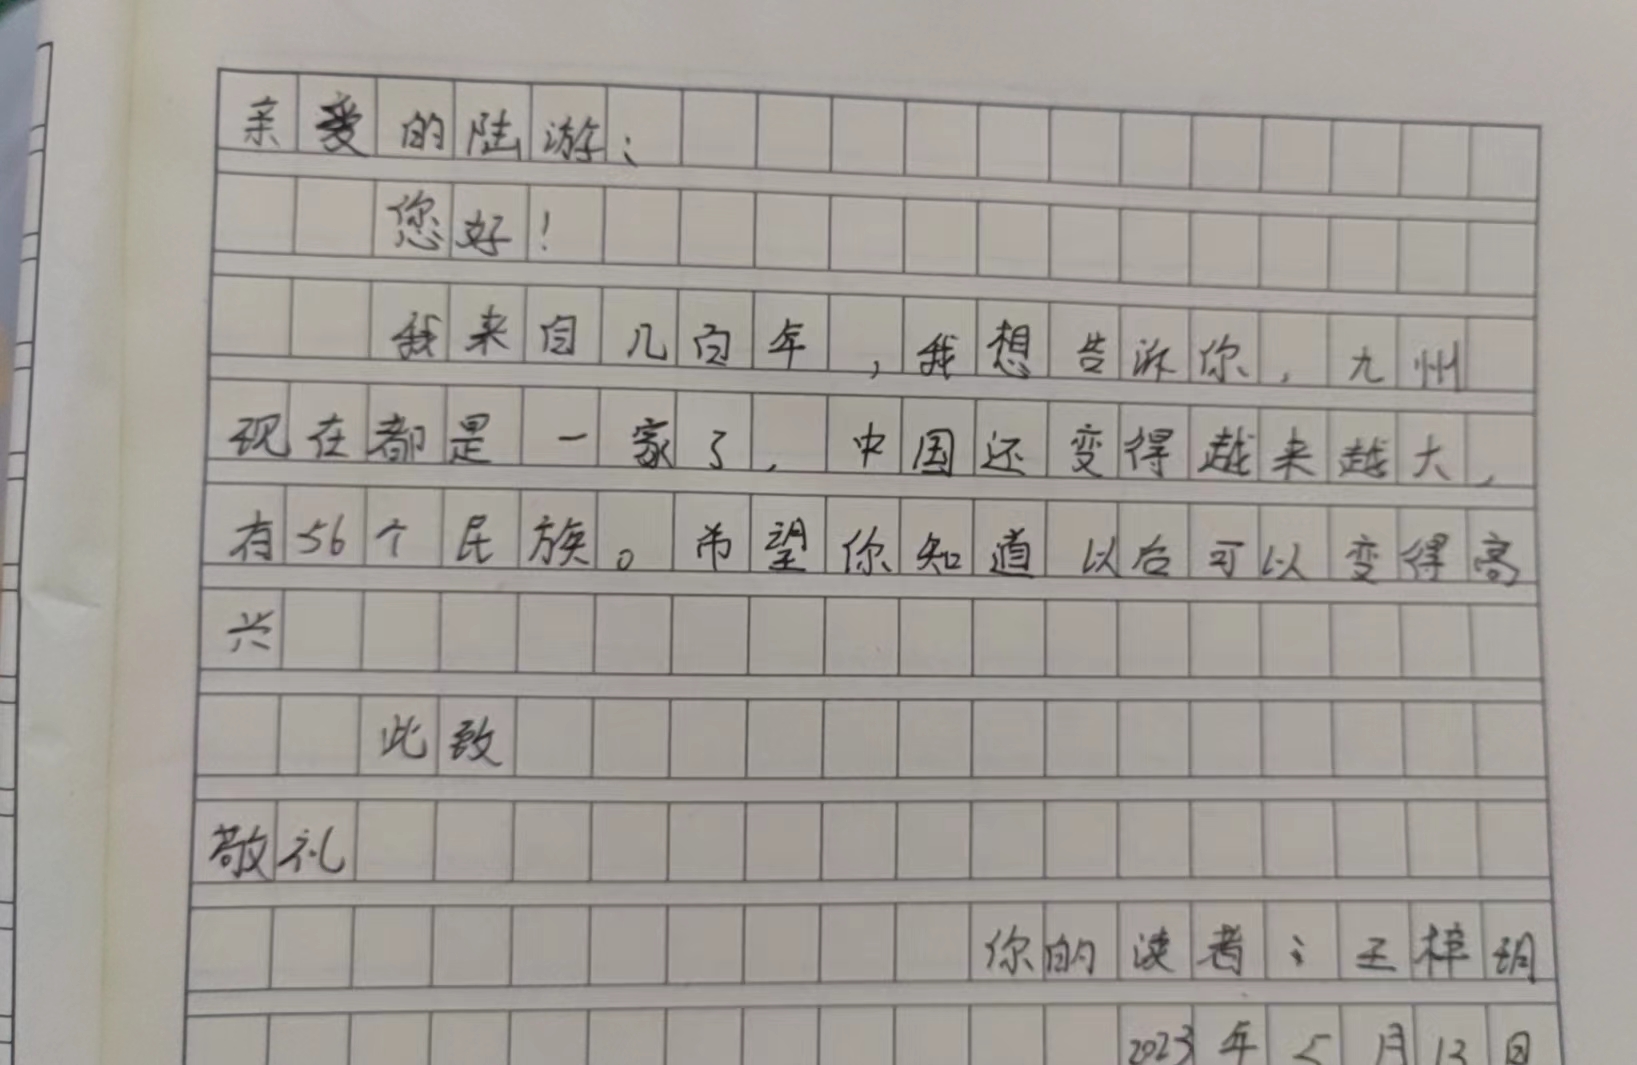 亲爱的陆游：
您好！
我来自几百年，我想告诉你，九州
现在都是一家了，中国还变得越来越大，
有56个民族。希望你知道以后可以变得高
兴
此致
敬礼
你的读者：王梓玥
2023年5月13日